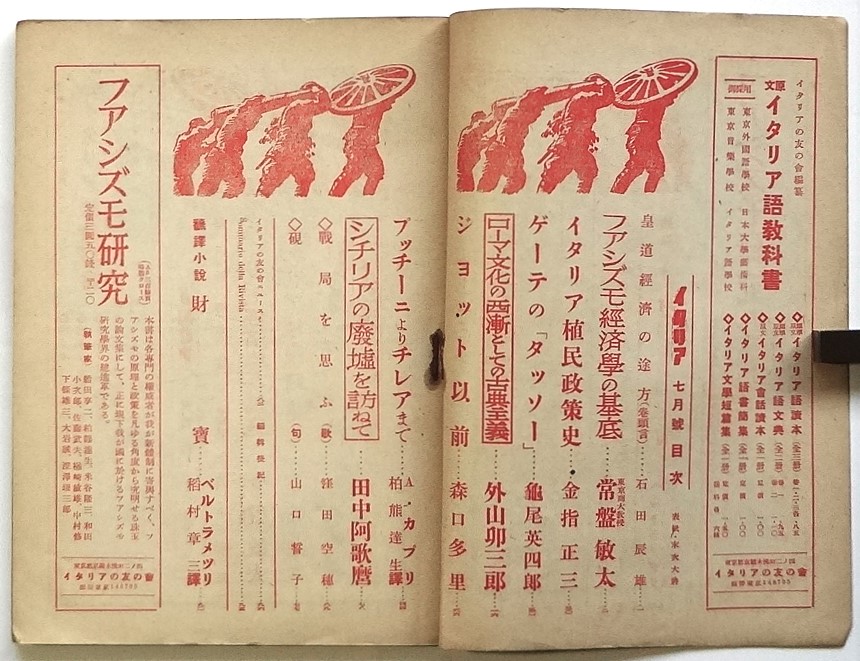 イタリアの友の會編纂
原文 イタリア語教科書
御採用
東京外國語學校 日本大學藝術科
東京音樂學校 イタリア語學校
◆イタリア語讀本(全三卷)
◆イタリア語文典(全二卷)
◆イタリア會話讀本(全一卷)
◆イタリア語書簡集(全一卷)
◆イタリア文學短篇集(全一卷)
イタリアの友の會
イタリア 七月號目次
皇道經濟の途方(卷頭言) 石田辰雄
ファシズモ經済學の基底 東京商大教授 常盤敏太
イタリア植民政策史 金指正三
ゲーテの「タッソー」 龜尾英四郎
ローマ文化の西漸としての古典主義 外山卯三郎
ジョット以前 森口多里
プッチーニよりチレアまで A・カプリ 柏熊達生譯
シチリアの廢墟を訪ねて 田中阿歌麿
◇戰局を思ふ(歌) 窪田空穂
◇硯(句) 山口誓子
イタリアの友の會ニュース
編輯後記
Sommario della Rivista
飜譯小說 財寶 ベルトラメッリ 稻村章三譯
ファシズモ研究
定價三圓五〇錢
本書は各專門の權威者が我が新體制に寄與すべく、フ
アシズモの原理と政策を凡ゆる角度から究明せる珠玉
の論文集にして、正に現下我が國に於けるファシズモ
研究學界の最進軍である。
(執筆者)
イタリアの友の會